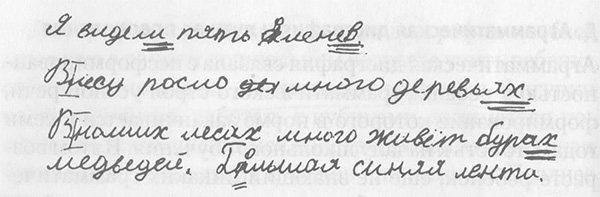 Я видем пять оленев
Влесу росло много деревьях.
Внаших лесах много живёт бурах
медведей. Большая синяя лента.